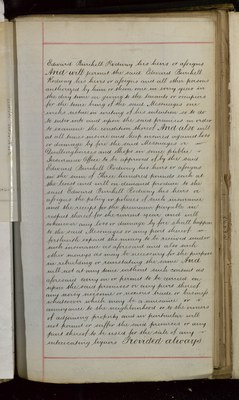 Edward Burchell Rodway his heirs or assigns
And will permit the said Edward Burchell
Rodway his heirs or assigns and all other persons
authorized by him or them once in every year in
the day time on giving to the tenants or occupiers
for the time being of the said Messuages one
week's notice in writing of his intention so to do
to enter into and upon the said premises in order
to examine the condition thereof And also will
at all times insure and keep insured against loss
or damage by fire the said Messuages or
Dwellinghouses and Shops in some public
Insurance Office to be approved of by the said
Edward Burchell Rodway his heirs or assigns
in the sum of Three hundred pounds each at
the least and will on demand produce to the
said Edward Burchell Rodway his heirs or
assigns the policy or policies of such insurance
and the receipt for the premium payable in
respect thereof for the current year and will
whenever any loss or damage by fire shall happen
to the said Messuages or any part thereof
forthwith expend the money to be received under
such insurance as aforesaid and also such
other moneys as may be necessary for the purpose
in rebuilding or reinstating the same And
will not at any time without such consent as
aforesaid carry on or permit to be carried on
upon the said premises or any part thereof
any noisy noisome or noxious trade or business
whatsoever which may be a nuisance or
annoyance to the neighbourhood or to the owners
of adjoining property and in particular will
not permit or suffer the said premises or any
part thereof to be used for the sale of any
intoxicating liquors Provided always